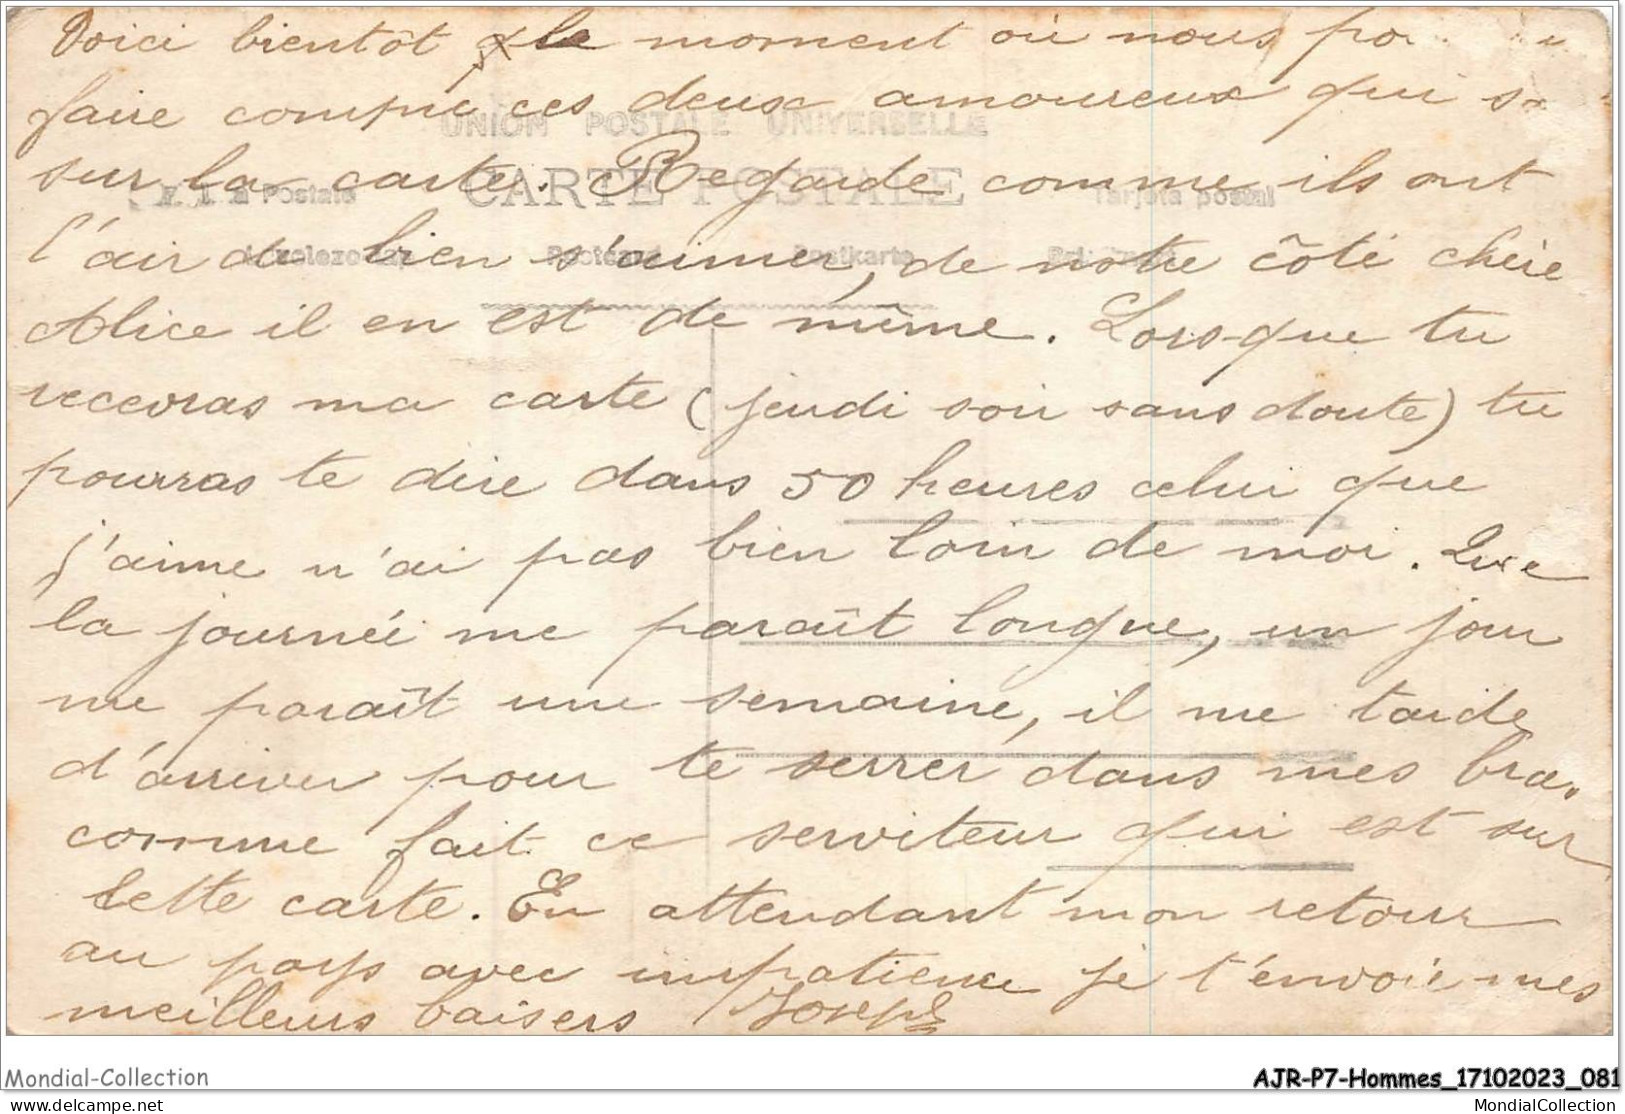 Voici bientôt le moment où nous
faire comme ces deux amoureux qui
sur la carte. Regarde comme ils ont
l'air de bien s'aimer, de notre côté chère
Alice il en est de même. Lorsque tu
recevras ma carte (jeudi soir sans doute) tu
pourras te dire dans 50 heures celui que
j'aime n'ai pas bien loin de moi. Que
la journée me paraît longue, un jour
me paraît une semaine, il me tarde
d'arriver pour te serrer dans mes bras
comme fait ce serviteur qui est sur
cette carte. En attendant mon retour
au pays avec impatience je t'envoie mes
meilleurs baisers Joseph
UNION POSTALE UNIVERSELLE
CARTE POSTALE
Postale
Tarjeta postal
Postkarte
Mondial-Collection
AJR-P7-Hommes_17102023_081
delcampe.net
MondialCollection